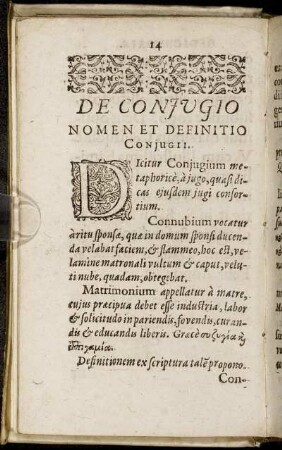 14
DE CONJVGIO
NOMEN ET DEFINITIO
CONJUGII.
DIcitur Conjugium me-
taphoricè, à jugo, quasi di-
cas ejusdem jugi consor-
tium.
Connubium vocatur
à ritu sponsæ, quæ in domum sponsi ducen-
da velabat faciem, & flammeo, hoc est, ve-
lamine matronali vultum & caput, velu-
ti nube, quadam, obtegebat.
Matrimonium appellatur à matre,
cujus præcipua debet esse industria, labor
& solicitudo in pariendis, fovendis, curan-
dis & educandis liberis. Græcè συζυγία &
ἐπιγαμία.
Definitionem ex scriptura talē propono.
Con-